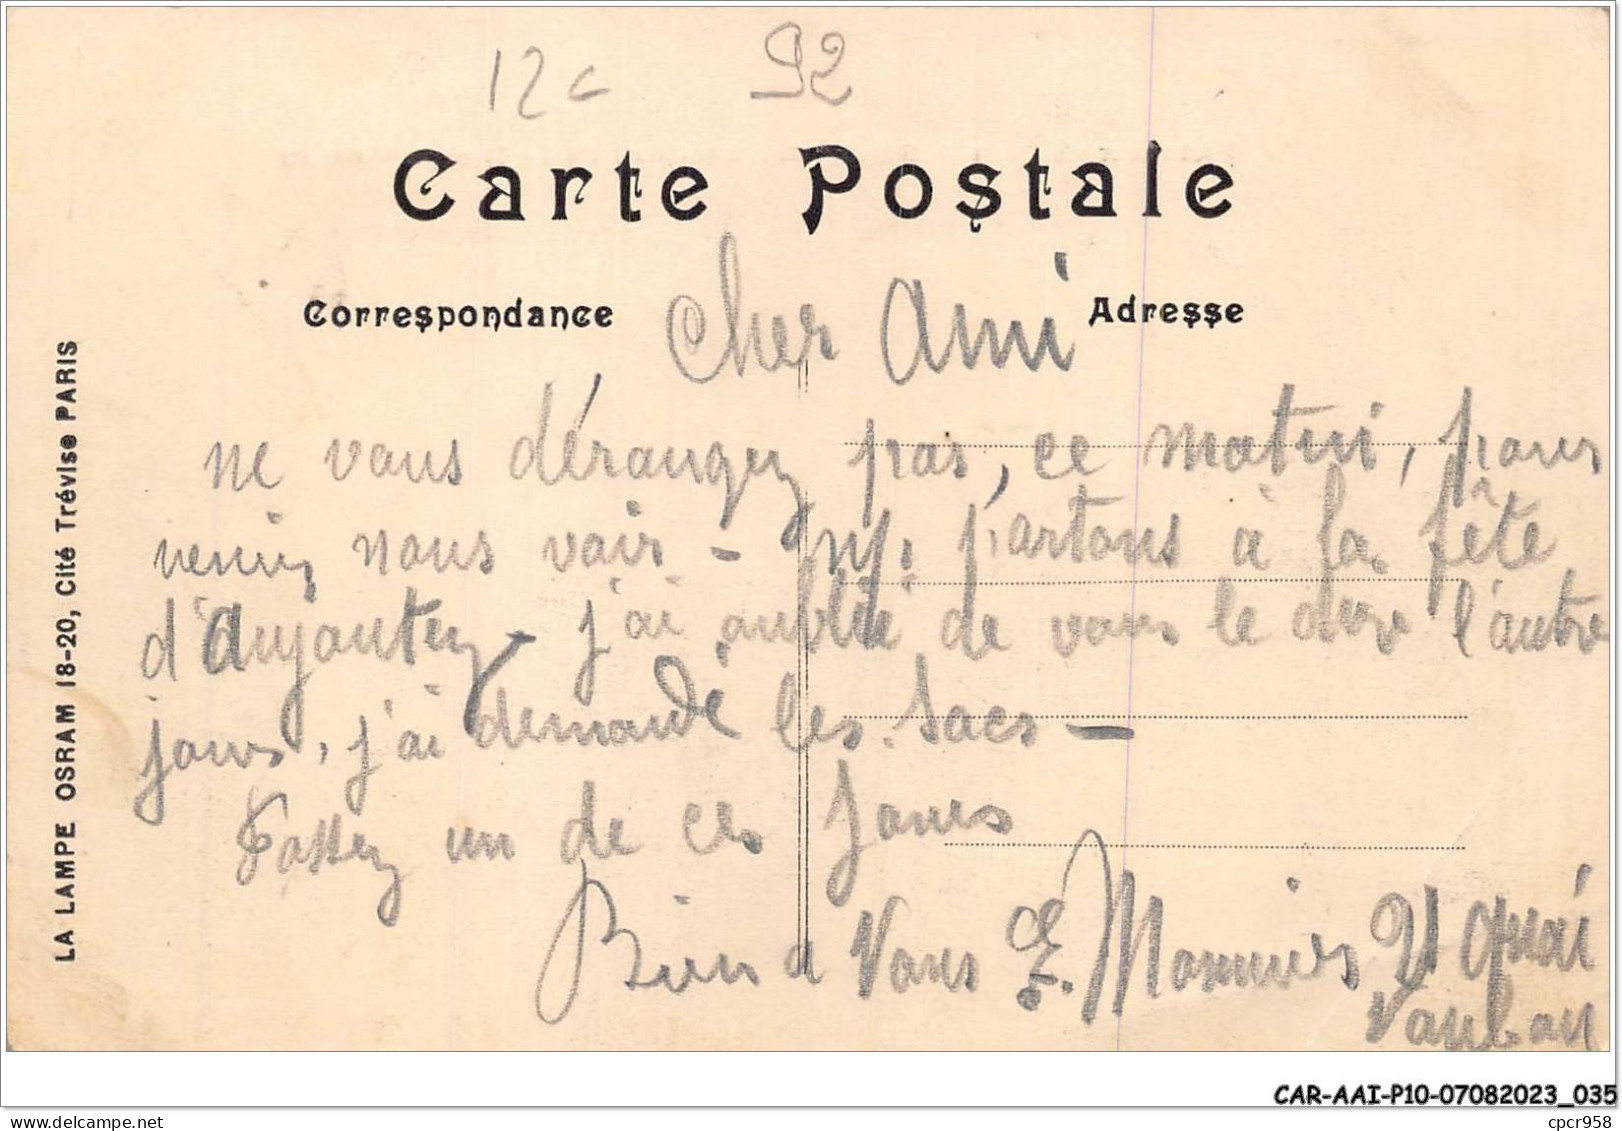 12c 92
Carte Postale
Correspondance
Adresse
Cher Ami
ne vous dérangez pas, ce matin, pour
venir nous voir - ns partons à la fête
d'aujoutez j'ai oublié de vous le dire l'autre
jours, j'ai demandé les sacs -
Passez un de ces jours
Bien à Vous E. Monnier 21 Quai
Vauban
LA LAMPE OSRAM 18-20, Cité Trévise PARIS
CAR-AAI-P10-07082023_035
cpcr958